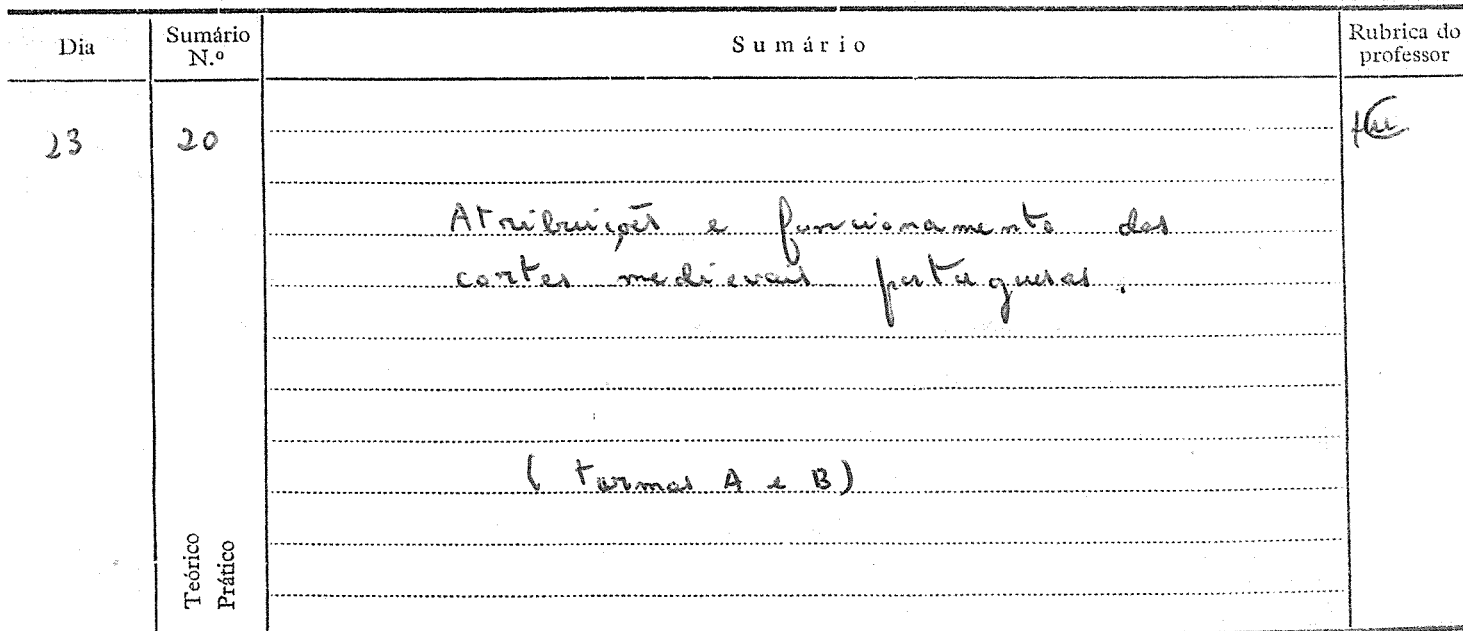 Dia
Sumário N.º
Sumário
Rubrica do professor
23
20
Atribuições e funcionamento das
cortes medievais portuguesas.
(turmas A e B)
Teórico
Prático